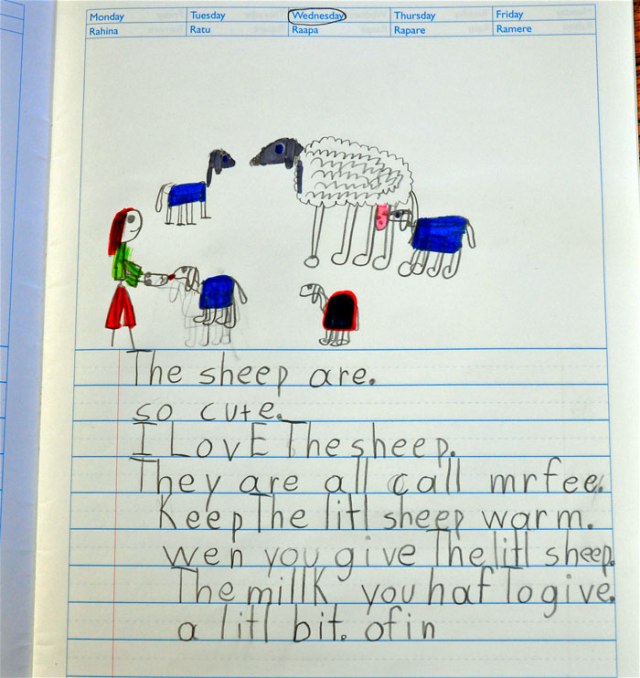 Monday Tuesday Wednesday Thursday Friday
Rahina Ratu Raapa Rapare Ramere
The sheep are.
so cute.
I LovE The sheep.
They are all call mrfee.
Keep The litl sheep warm.
wen you give The litl sheep.
The millk you haf To give.
a litl bit. of in